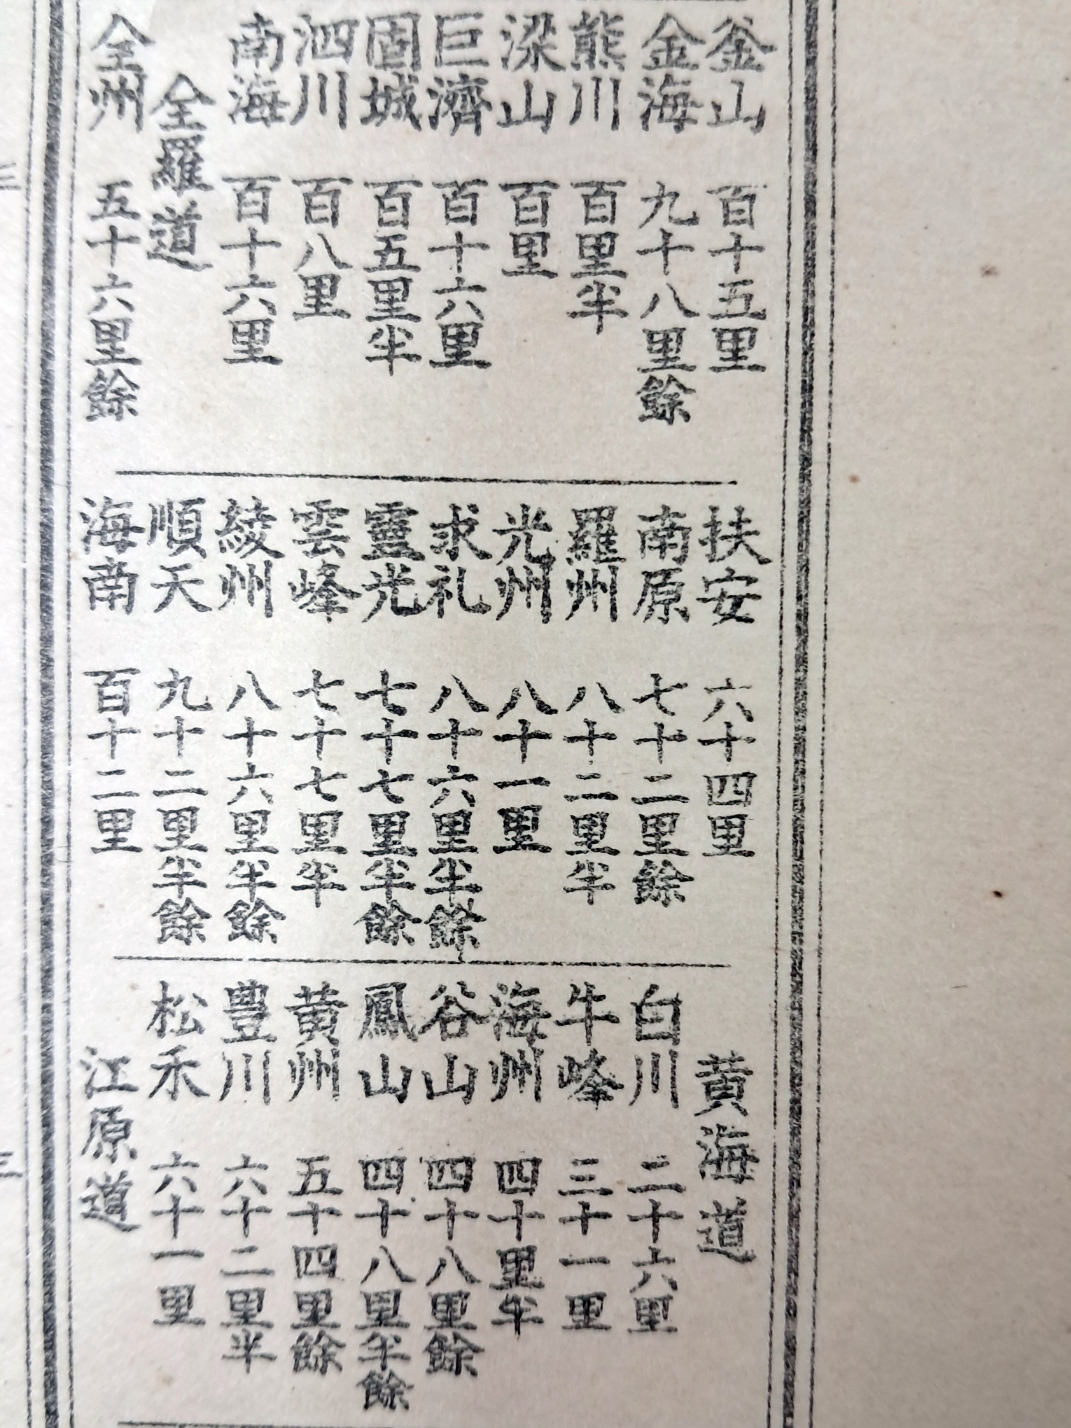 釜山 百十五里
金海 九十八里餘
熊川 百里半
梁山 百里
巨濟 百十六里
固城 百五里半
泗川 百八里
南海 百十六里
全羅道
全州 五十六里餘
扶安 六十四里
南原 七十二里餘
羅州 八十二里半
光州 八十一里
求礼 八十六里半餘
靈光 七十七里半餘
雲峰 七十七里半
綾州 八十六里半餘
順天 九十二里半餘
海南 百十二里
黄海道
白川 二十六里
牛峰 三十一里
海州 四十里半
谷山 四十八里餘
鳳山 四十八里半餘
黄州 五十四里餘
豊川 六十二里半
松禾 六十一里
江原道
三
三